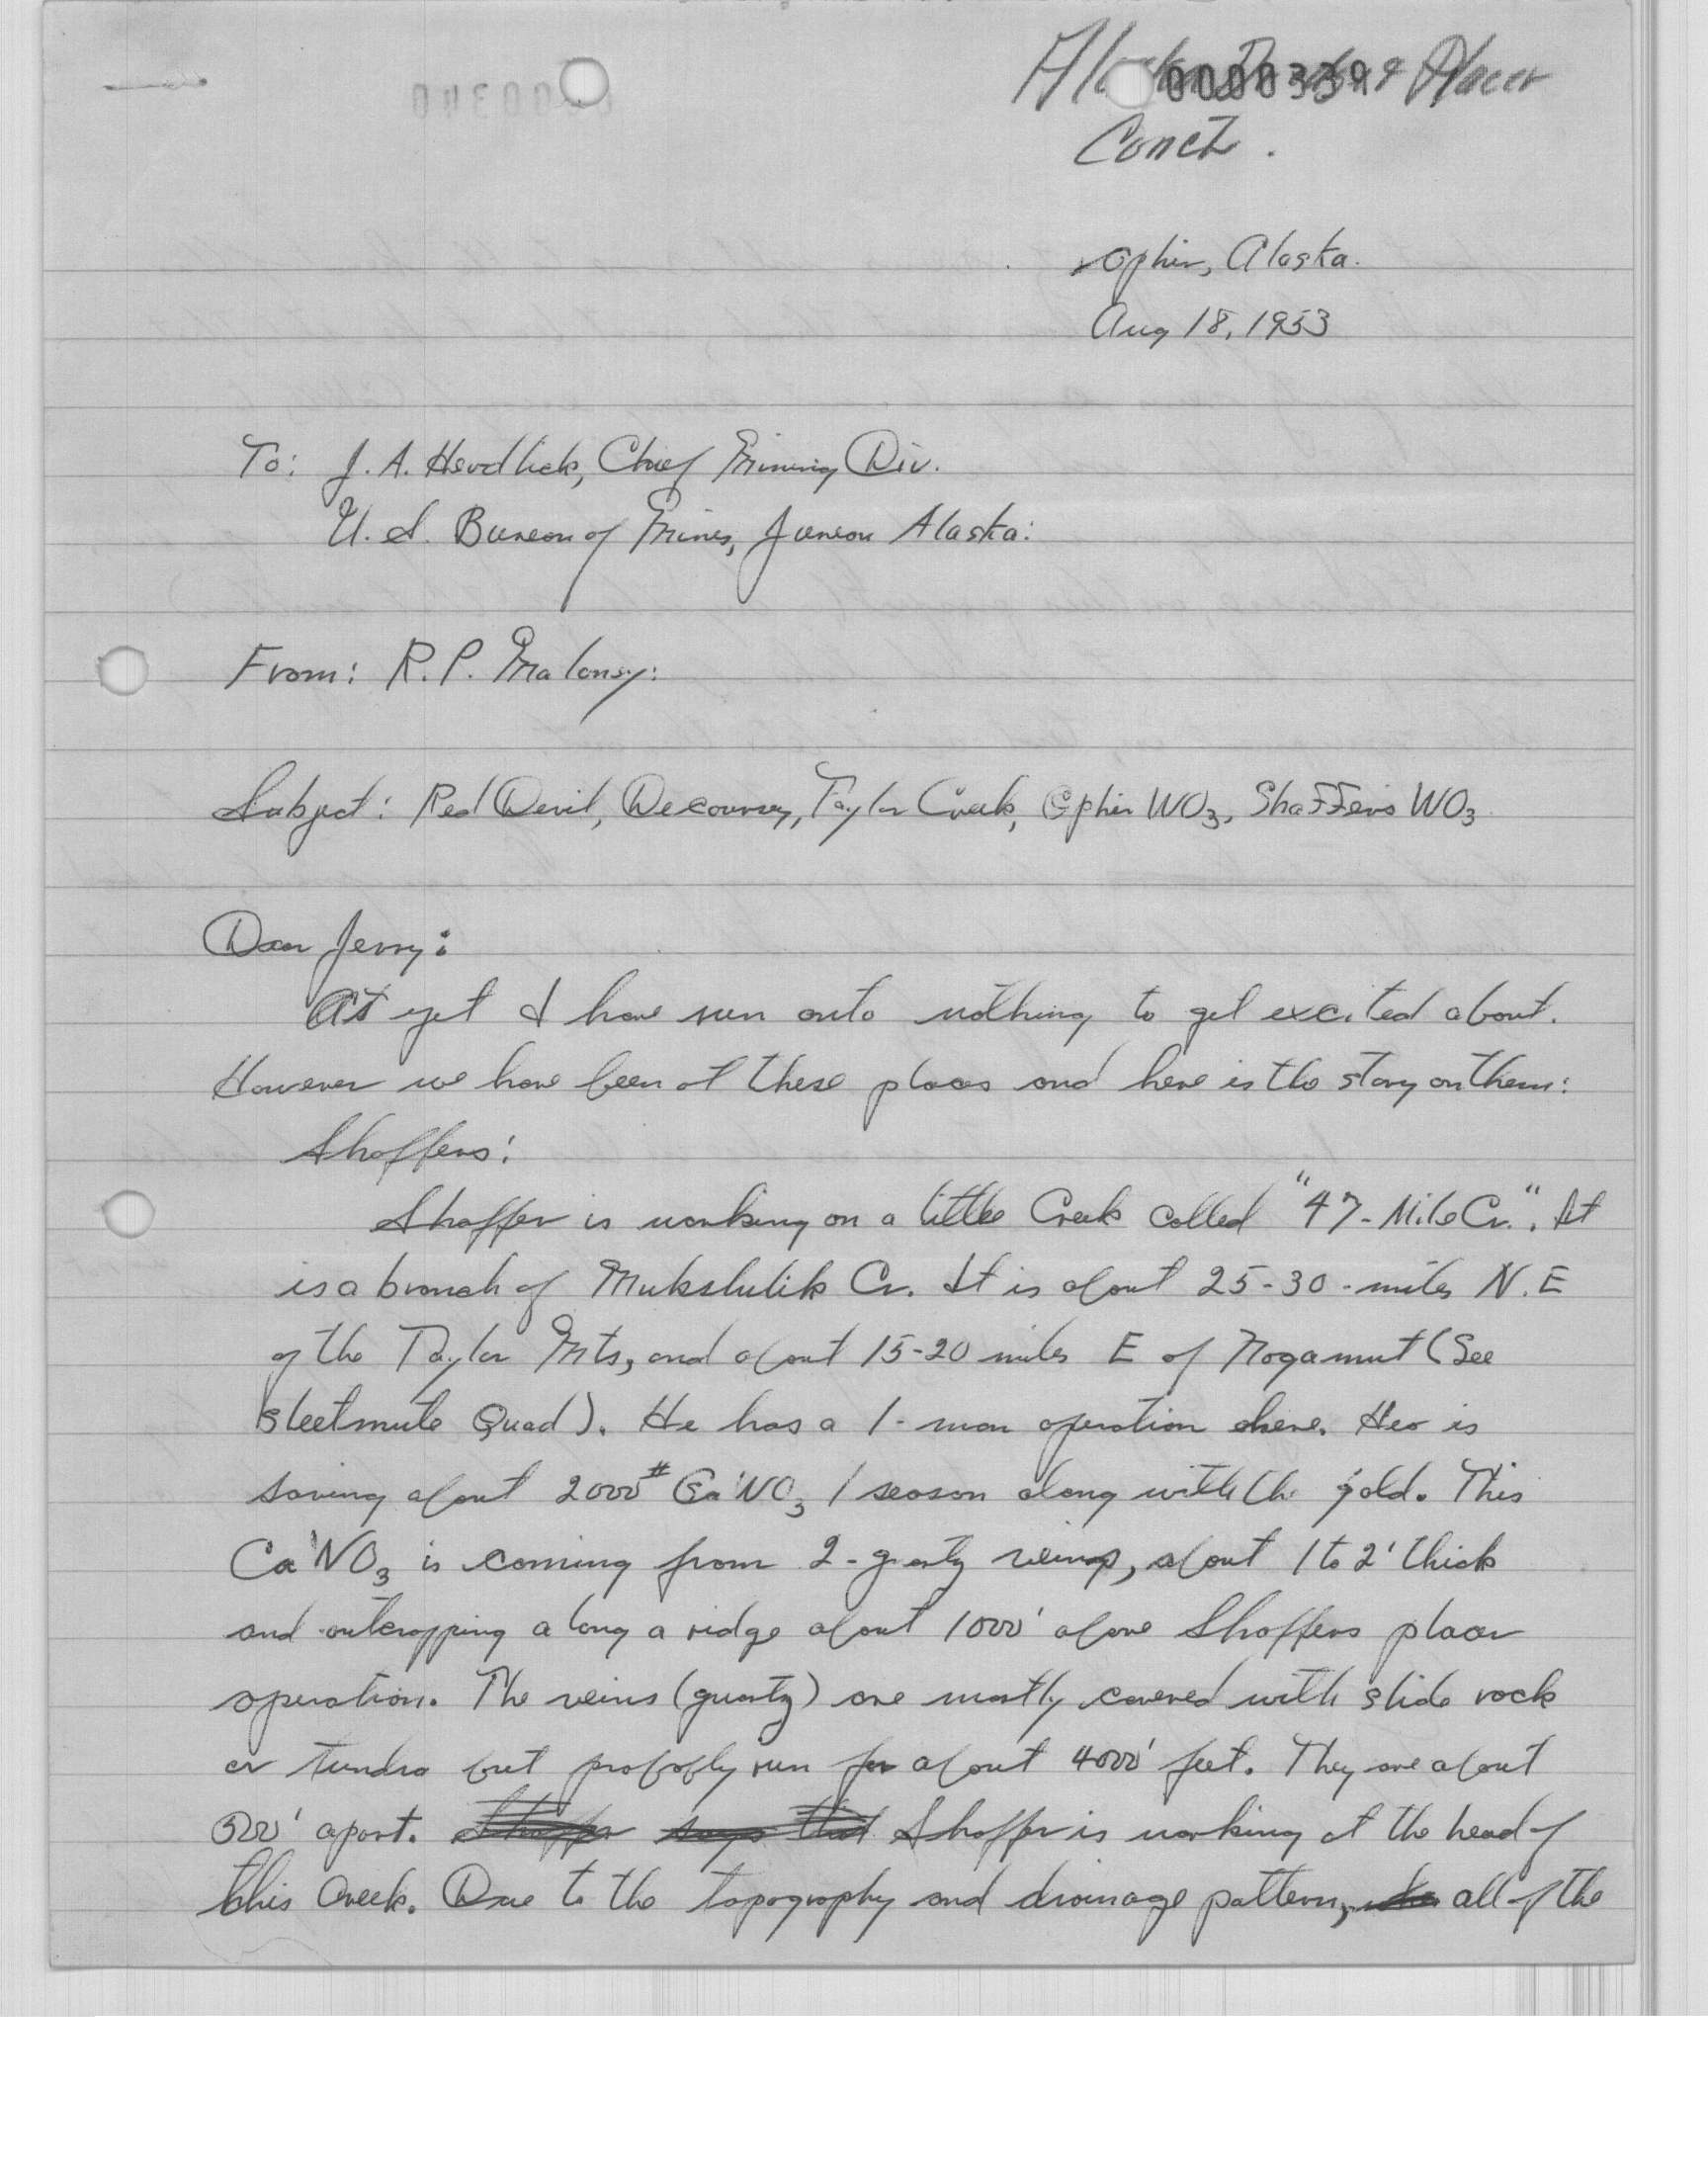 0000339
Placer
Conct.
Ophir, Alaska.
Aug 18, 1953
To: J. A. Herdlick, Chief Mining Div.
U. S. Bureau of Mines, Juneau Alaska:
From: R. P. Maloney:
Subject: Red Devil, Decoursey, Taylor Creek, Ophir WO3, Shaffers WO3
Dear Jerry:
As yet I have run onto nothing to get excited about.
However we have been at these places and here is the story on them:
Shaffers:
Shaffer is working on a little Creek called "47-Mile Cr.". It
is a branch of Mukslulik Cr. It is about 25-30-miles N.E
of the Taylor Mts, and about 15-20 miles E of Nogamut (See
Sleetmute Quad). He has a 1-man operation here. He is
saving about 2000# CaWO3 / season along with the gold. This
CaWO3 is coming from 2-quartz veins, about 1 to 2' thick
and outcropping along a ridge about 1000' above Shaffers placer
operation. The veins (quartz) are mostly covered with slide rock
or tundra but probably run for about 4000' feet. They are about
500' apart. Shaffer says that Shaffer is working at the head of
this Creek. Due to the topography and drainage pattern, all of the